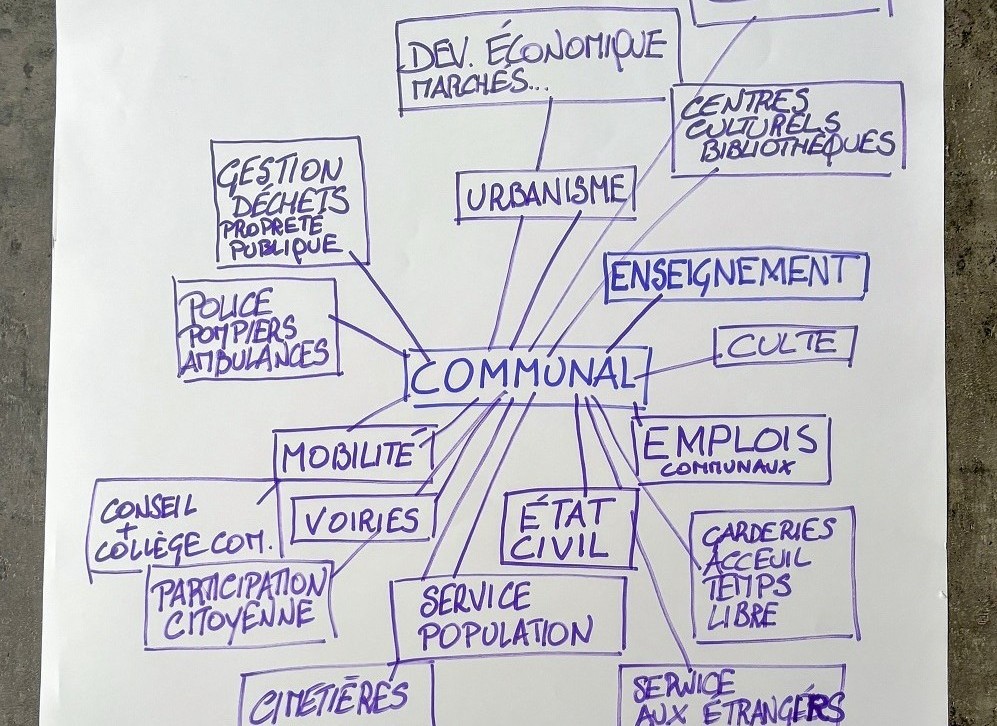 DEV. ÉCONOMIQUE
MARCHÉS...
CENTRES
CULTURELS
BIBLIOTHÈQUES
GESTION
DÉCHETS
PROPRETÉ
PUBLIQUE
URBANISME
ENSEIGNEMENT
POLICE
POMPIERS
AMBULANCES
CULTE
COMMUNAL
MOBILITÉ
EMPLOIS
COMMUNAUX
CONSEIL
+
COLLÈGE COM.
VOIRIES
ÉTAT
CIVIL
GARDERIES
ACCEUIL
TEMPS
LIBRE
PARTICIPATION
CITOYENNE
SERVICE
POPULATION
CIMETIÈRES
SERVICE
AUX ÉTRANGÉRS